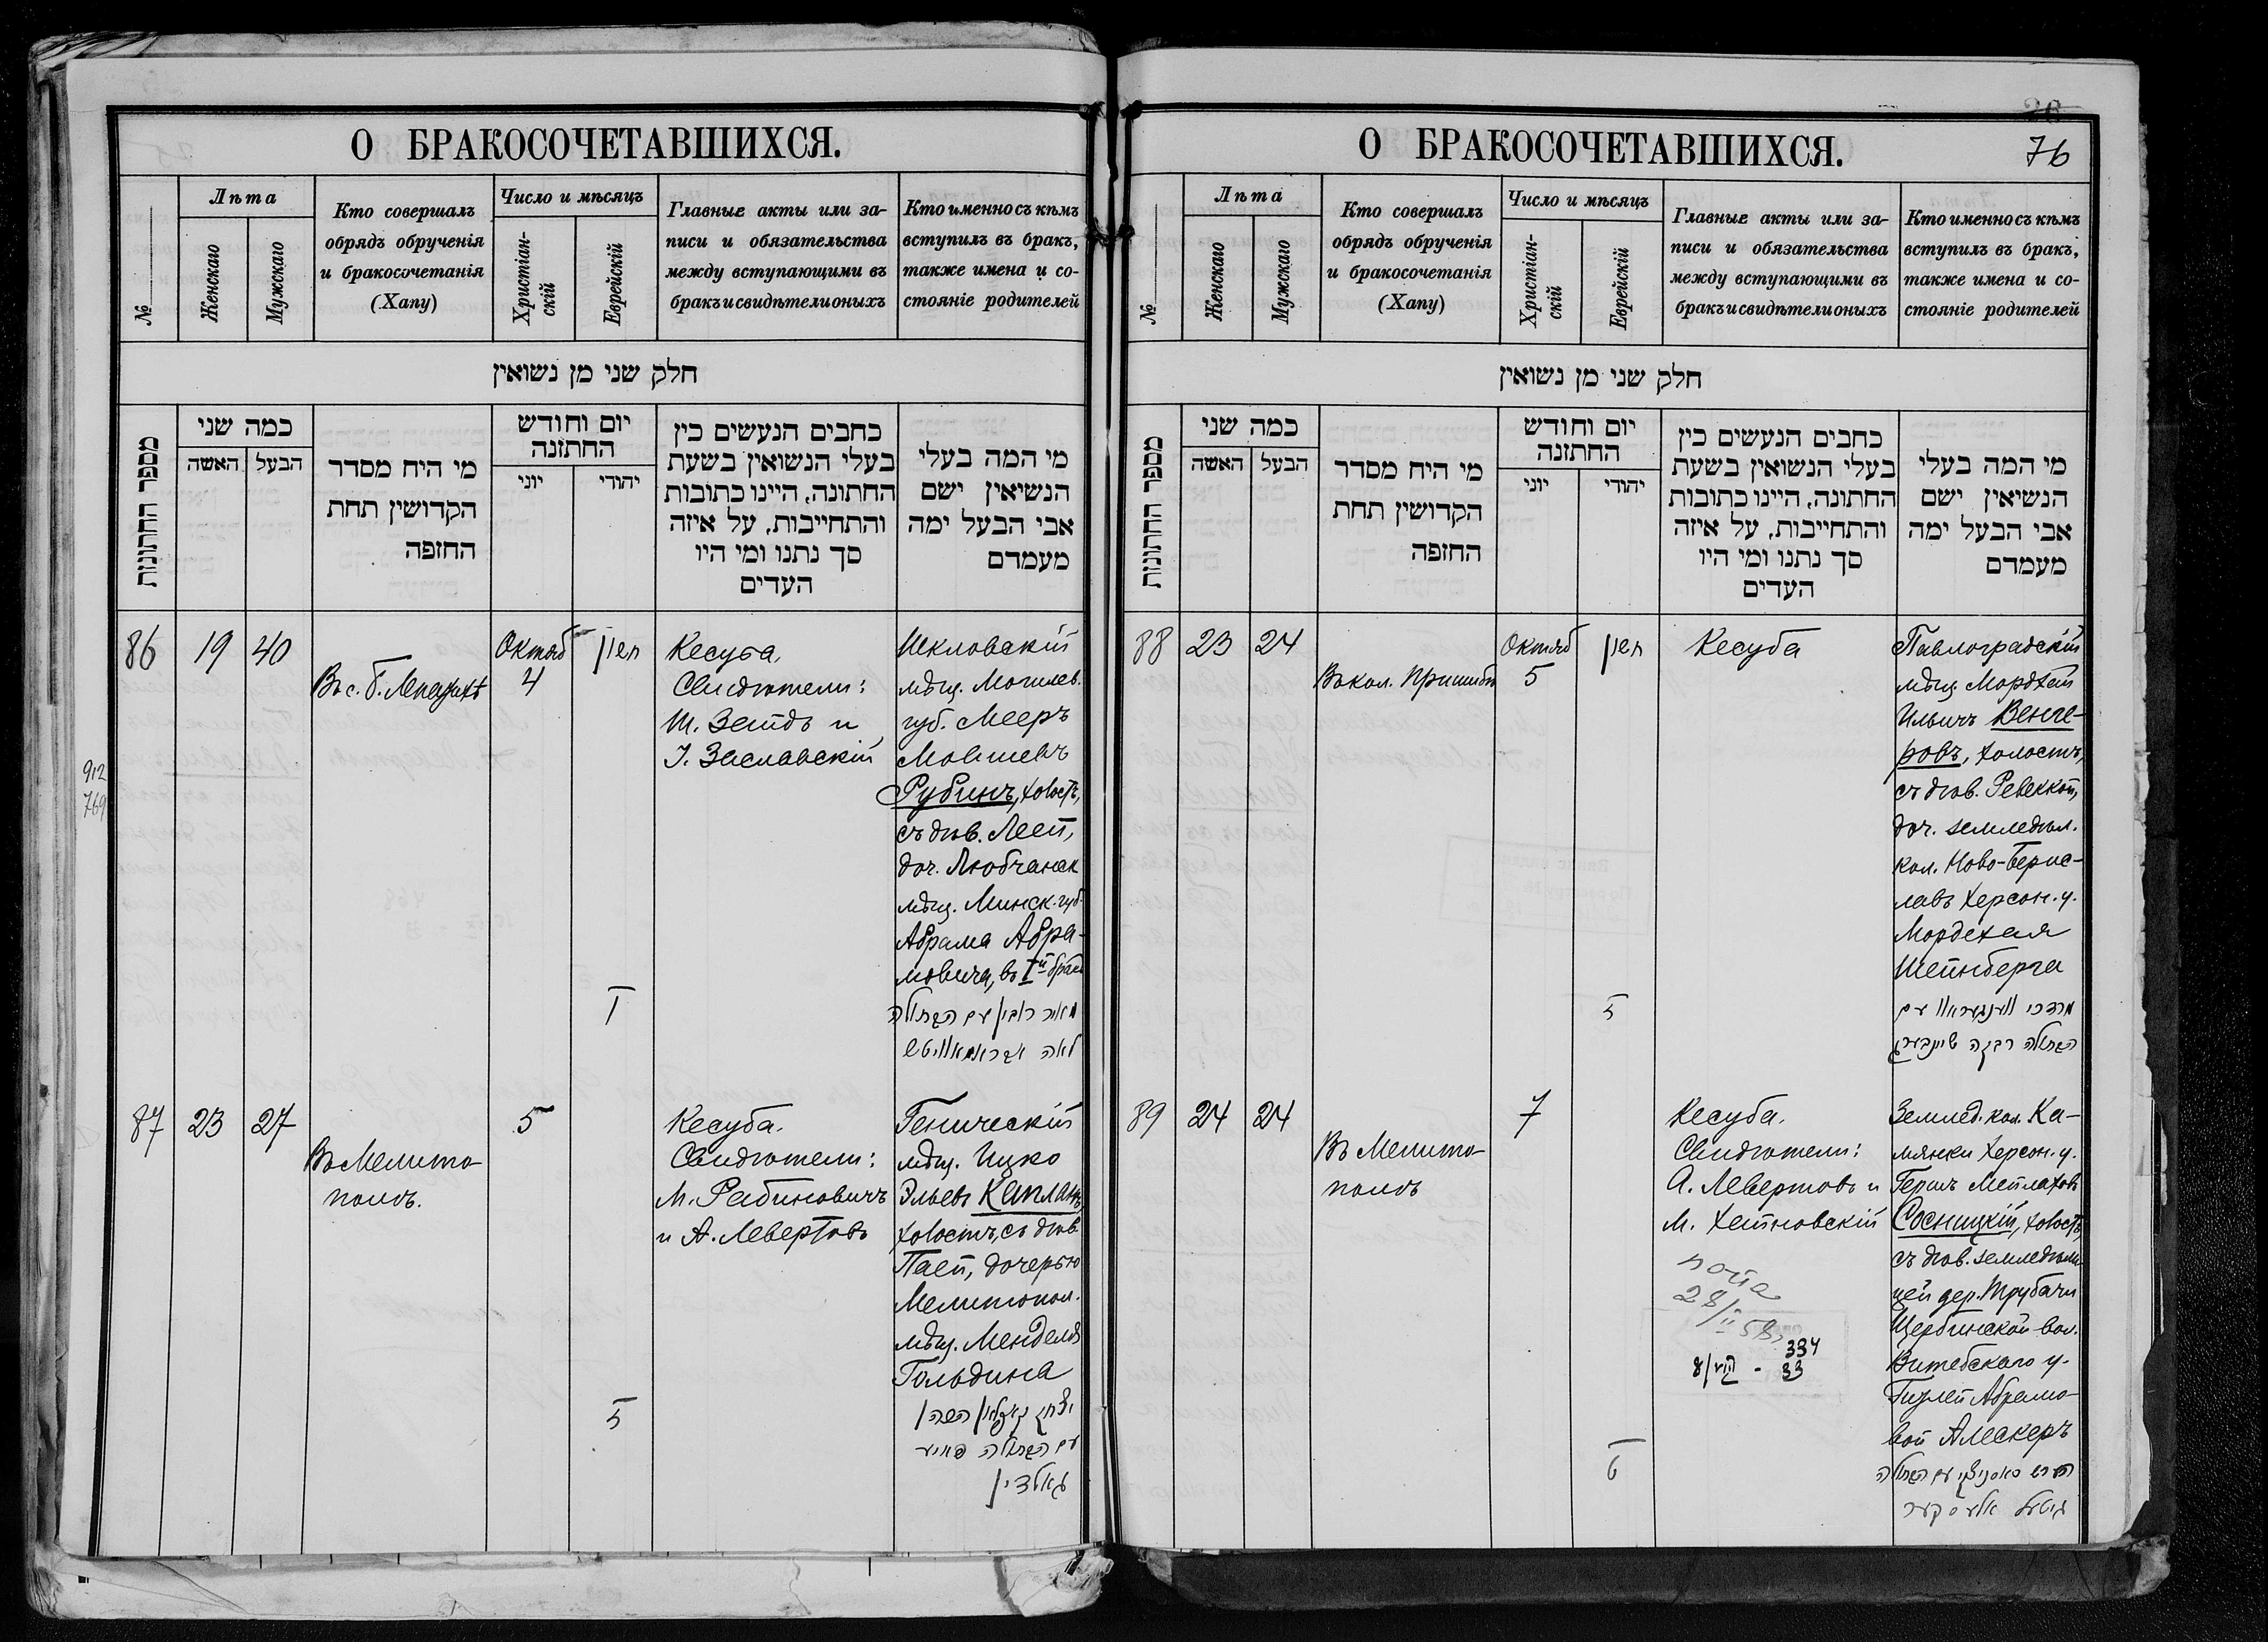 О БРАКОСОЧЕТАВШИХСЯ.
№
Лѣта
Женскаго
Мужскаго
Кто совершалъ
обрядъ обрученія
и бракосочетанія
(Хапу)
Число и мѣсяцъ
Христіан-
скій
Еврейскій
Главные акты или за-
писи и обязательства
между вступающими въ
бракъ и свидѣтели оныхъ
Кто именно съ кѣмъ
вступилъ въ бракъ,
также имена и со-
стояніе родителей
חלק שני מן נשואין
מספר החתונות
כמה שני
האשה
הבעל
מי היח מסדר
הקדושין תחת
החזפה
יום וחודש
החתזנה
יוני
יהודי
כחבים הנעשים כין
בעלי הנשואין בשעת
החתונה, היינו כתובות
והתחייבות, על איזה
סך נתנו ומי היו
העדים
מי המה בעלי
הנשיאין ישם
אבי הבעל ימה
מעמדם
86
19
40
Въ с. б. Лепатихѣ
Октяб
4
חשון
Кесуба.
Свидѣтели:
Ш. Зейдъ и
І. Заславскій
Шкловскій
мѣщ. Могилев.
губ. Мееръ
Мовшевъ
Рубинъ, холостъ,
съ дѣв. Леей,
доч. Любчанск
мѣщ. Минск. губ.
Абрама Абра-
мовича, въ I-й бракъ
ד
מאיר רובין עם הבתולה
לאה אבראמאוויטש
912
769
87
23
27
Въ Мелито-
полѣ.
5
Кесуба.
Свидѣтели:
М. Рабиновичъ
и А. Левертовъ
Генический
мѣщ. Ицко
Эльевъ Капланъ,
холостъ, съ дѣв.
Паей, дочерью
Мелитопол.
мѣщ. Менделя
Гольдина
ה
יצחק קאפלאן הכהן
עם הבתולה פאיע
גאלדין
О БРАКОСОЧЕТАВШИХСЯ.
76
№
Лѣта
Женскаго
Мужскаго
Кто совершалъ
обрядъ обрученія
и бракосочетанія
(Хапу)
Число и мѣсяцъ
Христіан-
скій
Еврейскій
Главные акты или за-
писи и обязательства
между вступающими въ
бракъ и свидѣтели оныхъ
Кто именно съ кѣмъ
вступилъ въ бракъ,
также имена и со-
стояніе родителей
חלק שני מן נשואין
מספר החתונות
כמה שני
האשה
הבעל
מי היח מסדר
הקדושין תחת
החזפה
יום וחודש
החתזנה
יוני
יהודי
כחבים הנעשים כין
בעלי הנשואין בשעת
החתונה, היינו כתובות
והתחייבות, על איזה
סך נתנו ומי היו
העדים
מי המה בעלי
הנשיאין ישם
אבי הבעל ימה
מעמדם
88
23
24
Въ кол. Пришибъ
Октяб
5
חשון
Кесуба
Павлоградскій
мѣщ. Мордхай
Ильичъ Венге-
ровъ, холостъ,
съ дѣв. Ревеккой,
доч. земледѣл.
кол. Ново-Берис-
лавъ Херсон. у.
Мордехая
Шейнберга
ה
מרדכי ווענגעראוו עם
הבתולה רבקה שיינבערג
89
24
24
Въ Мелито-
полѣ
7
Кесуба.
Свидѣтели:
А. Левертовъ и
М. Хейновскій
28/II 58
334
33
Землед. кол. Ка-
мянки Херсон. у.
Гершъ Мейлаховъ
Сосницкій, холостъ,
съ дѣв. земледѣли-
цей дер. Трубачи
Щербинской вол.
Витебскаго у.
Гитлей Абрамо-
вой Алескеръ
הירש סאסניצקי עם הבתולה
גיטעל אלעסקער